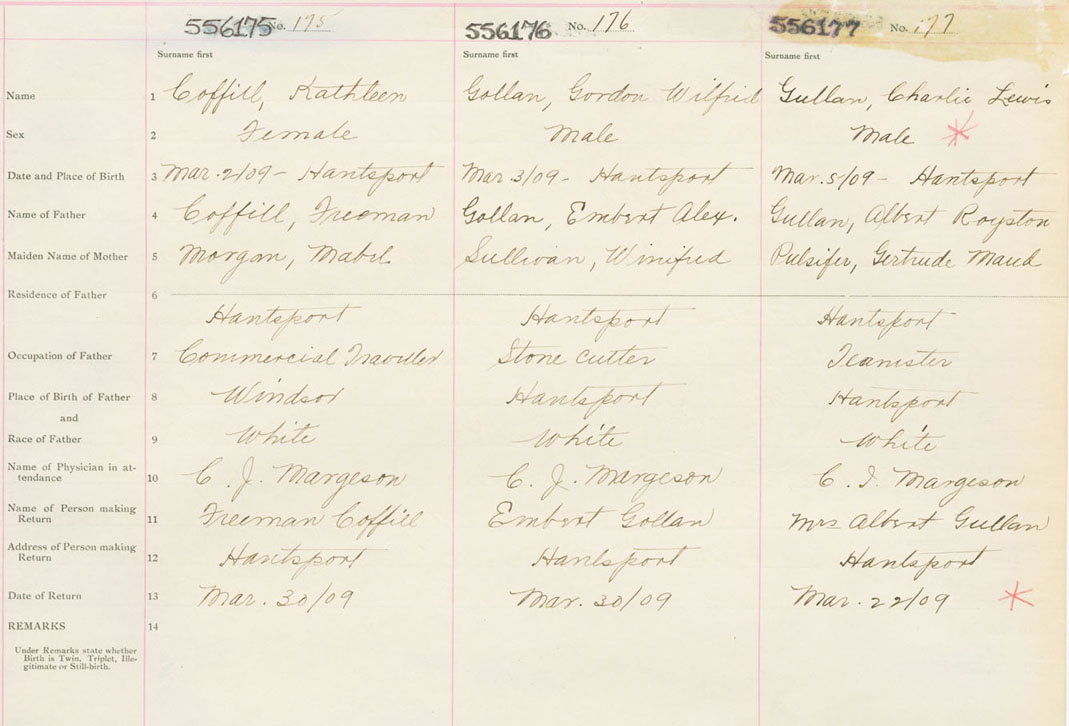 556175 No. 175 556176 No. 176 556177 No. 177
Surname first Surname first Surname first
Name 1 Coffill, Kathleen Gollan, Gordon Wilfrid Gullan, Charlie Lewis
Sex 2 Female Male Male
Date and Place of Birth 3 Mar. 2/09 - Hantsport Mar 3/09 - Hantsport Mar. 5/09 - Hantsport
Name of Father 4 Coffill, Freeman Gollan, Embert Alex. Gullan, Albert Royston
Maiden Name of Mother 5 Morgan, Mabel Sullivan, Winifred Pulsifer, Gertrude Maud
Residence of Father 6
Hantsport Hantsport Hantsport
Occupation of Father 7 Commercial Traveller Stone Cutter Teamster
Place of Birth of Father 8 Windsor Hantsport Hantsport
and
Race of Father 9 White White White
Name of Physician in at-
tendance 10 C. J. Margeson C. J. Margeson C. I. Margeson
Name of Person making
Return 11 Freeman Coffill Embert Gollan Mrs Albert Gullan
Address of Person making
Return 12 Hantsport Hantsport Hantsport
Date of Return 13 Mar. 30/09 Mar. 30/09 Mar. 22/09
REMARKS 14
Under Remarks state whether
Birth is Twin, Triplet, Ille-
gitimate or Still-birth.